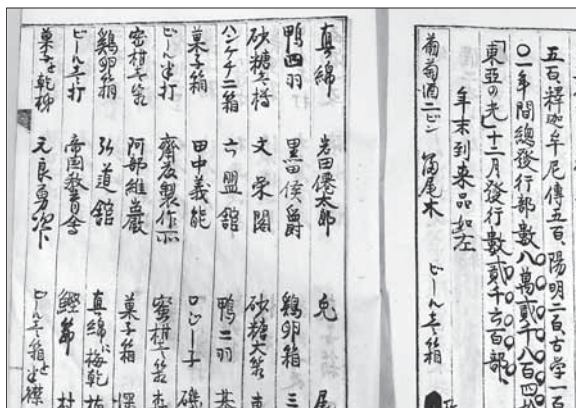 五百、釋迦牟尼傳五百、陽明二百、古学一百
〇一年間總發行部數八萬貳千八百四
「東亞の光」十二月發行數貳千六百部、
年末到来品如左
葡萄酒二ビン 冨尾木 ビール壱箱
真綿 岩田僊太郎 兎
鴨四羽 黒田侯爵 鶏卵箱 三
砂糖壱樽 文栄閣 砂糖大袋
ハンケチ二箱 六盟舘 鴨二羽
菓子箱 田中義能
ビール半打 齋友製作所 蜜柑壱箱
密柑壱箱 阿部維巌 菓子箱
鶏卵箱 弘道舘 真綿に梅乾
ビール壱打 帝國教育会 鰹節 村
菓子と乾柿 元良勇次 ビール壱箱と半襟